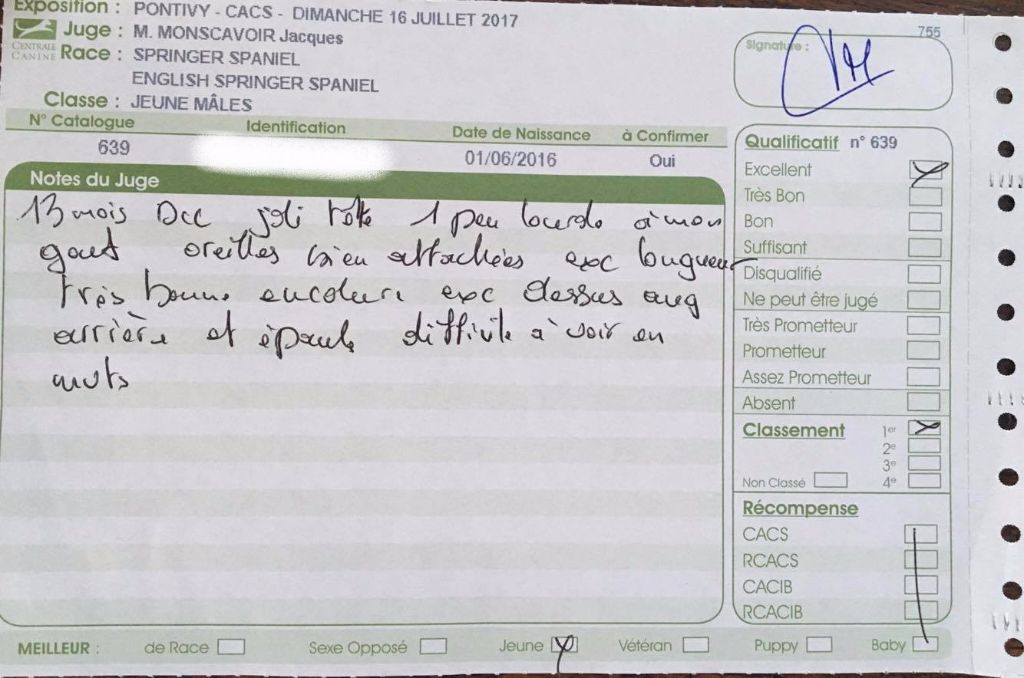 Exposition : PONTIVY - CACS - DIMANCHE 16 JUILLET 2017
Juge : M. MONSCAVOIR Jacques
CENTRALE CANINE
Race : SPRINGER SPANIEL
ENGLISH SPRINGER SPANIEL
Classe : JEUNE MÂLES
755
Signature :
N° Catalogue Identification Date de Naissance à Confirmer
639 01/06/2016 Oui
Notes du Juge
13 mois Dcc joli tête 1 peu lourde à mon
gout oreilles bien attachées exc longueur
très bonne encolure exc dessus ang
arrière et épaule difficile à voir en
Qualificatif n° 639
Excellent
Très Bon
Bon
Suffisant
Disqualifié
Ne peut être jugé
Très Prometteur
Prometteur
Assez Prometteur
Absent
Classement 1er
2e
3e
Non Classé 4e
Récompense
CACS
RCACS
CACIB
RCACIB
MEILLEUR : de Race Sexe Opposé Jeune Vétéran Puppy Baby